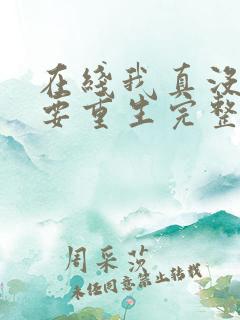 在綫我真没
要重生完整
周采莎
未经同意禁止转载